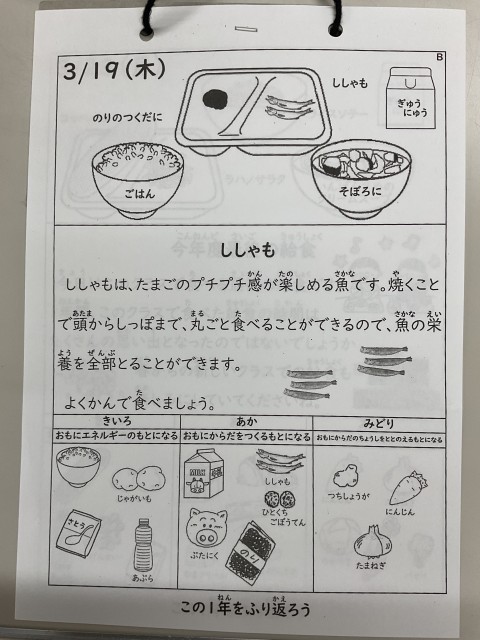 B
3/19(木)
ししゃも
ぎゅう
にゅう
のりのつくだに
ごはん
そぼろに
ししゃも
ししゃもは、たまごのプチプチ感が楽しめる魚です。焼くこと
で頭からしっぽまで、丸ごと食べることができるので、魚の栄
養を全部とることができます。
よくかんで食べましょう。
きいろ
あか
みどり
おもにエネルギーのもとになる
おもにからだをつくるもとになる
おもにからだのちょうしをととのえるもとになる
じゃがいも
MILK
ししゃも
つちしょうが
にんじん
ひとくち
ごぼうてん
さとう
あぶら
ぶたにく
のり
たまねぎ
この1年をふり返ろう